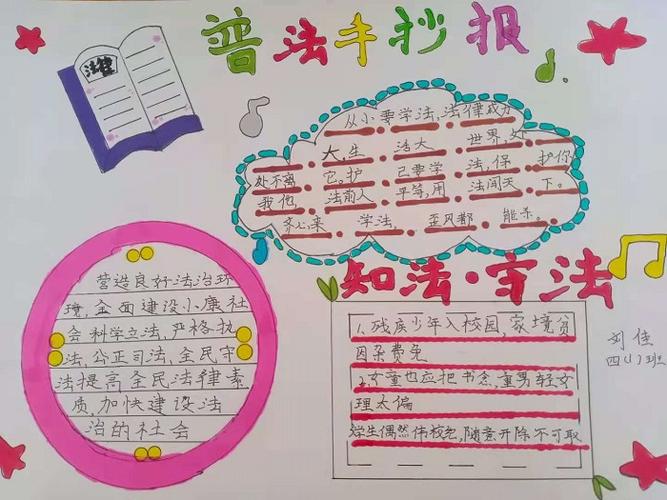 普法手抄报
法律
从小要学法,法律威力
大,生 活大 世界,处
处不离 它。护 己要学 法,保 护你
我他, 法前人 平等,用 法闯天 下。
齐心来 学法, 歪风都 能杀。
知法·守法
营造良好法治环
境,全面建设小康社
会科学立法,严格执
法,公正司法,全民守
法提高全民法律素
质,加快建设法
治的社会
1、残疾少年入校园,家境贫
因杂费免
2、女童也应把书念,重男轻女
理太偏
学生偶然伟校纪,随意开除不可取
刘佳
四(1)班